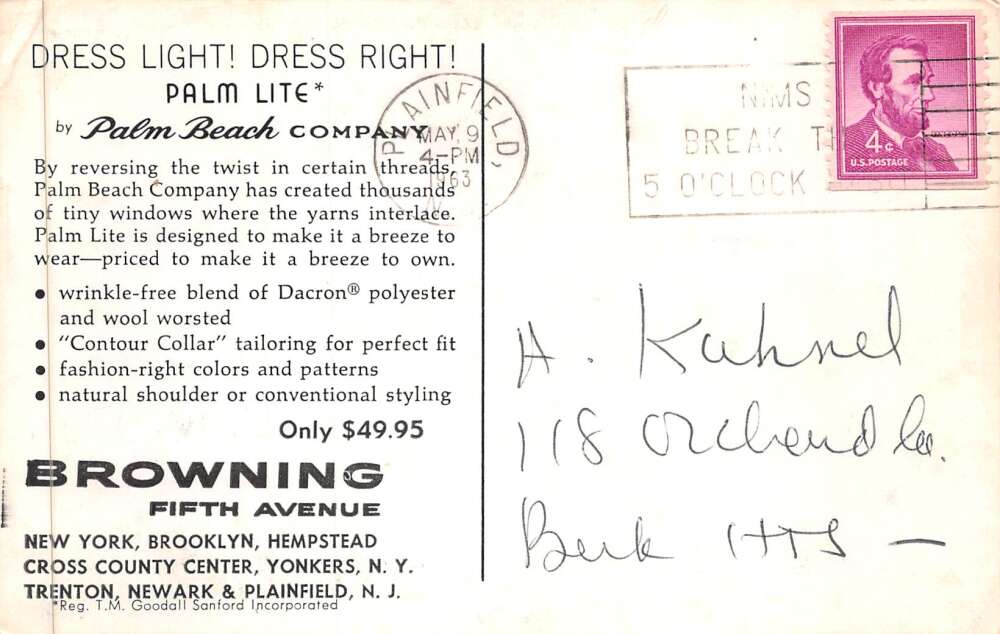 DRESS LIGHT! DRESS RIGHT!
PALM LITE*
by Palm Beach COMPANY
By reversing the twist in certain threads,
Palm Beach Company has created thousands
of tiny windows where the yarns interlace.
Palm Lite is designed to make it a breeze to
wear—priced to make it a breeze to own.
• wrinkle-free blend of Dacron® polyester
and wool worsted
• "Contour Collar" tailoring for perfect fit
• fashion-right colors and patterns
• natural shoulder or conventional styling
Only $49.95
BROWNING
FIFTH AVENUE
NEW YORK, BROOKLYN, HEMPSTEAD
CROSS COUNTY CENTER, YONKERS, N. Y.
TRENTON, NEWARK & PLAINFIELD, N. J.
*Reg. T.M. Goodall Sanford Incorporated
PLAINFIELD,
MAY 9
4-PM
1963
BREAK
5 O'CLOCK
4¢
U.S. POSTAGE
H. Kuhnel
118 Orchard
Berk HTS —